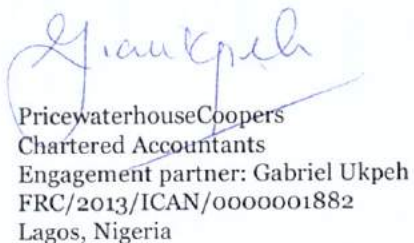 PricewaterhouseCoopers
Chartered Accountants
Engagement partner: Gabriel Ukpeh
FRC/2013/ICAN/0000001882
Lagos, Nigeria